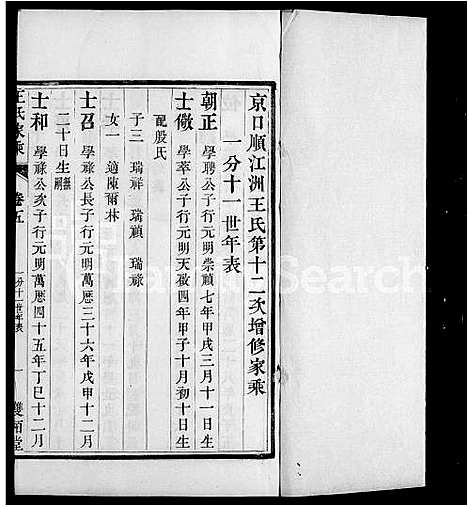 京口順江洲王氏第十二次增修家乘
一分十一世年表
朝正 學聘公子行元明崇禎七年甲戌三月十一日生
士儆 學萃公子行元明天啟四年甲子十月初十日生
配殷氏
子三 瑞祥 瑞禎 瑞祿
女一 適陳爾林
士召 學祿公長子行元明萬曆三十六年戊申十二月
二十日生無嗣
士和 學祿公次子行元明萬曆四十五年丁巳十二月
王氏家乘
卷五
一分十一世年表
一
雙槐堂
Search